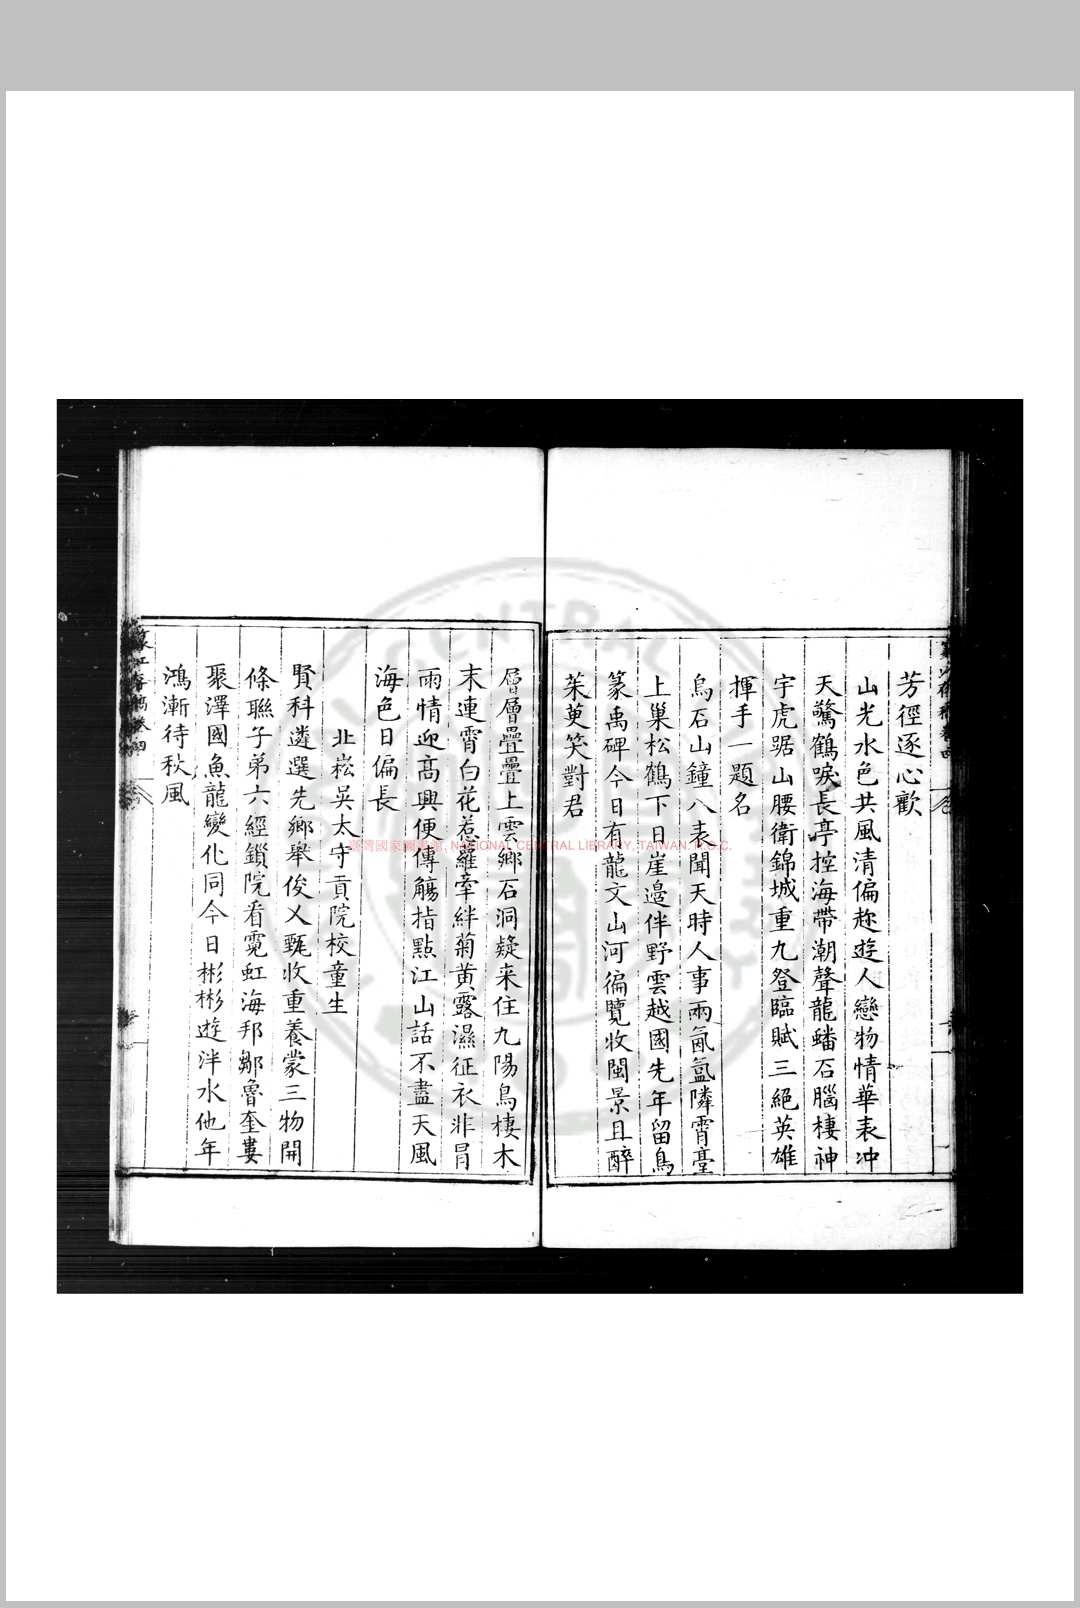 芳徑逐心歡
山光水色共風清偏趂遊人戀物情華表冲
天驚鶴唳長亭控海帶潮聲龍蟠石腦棲神
宇虎踞山腰衛錦城重九登臨賦三絕英雄
揮手一題名
烏石山鐘八表聞天時人事兩氤氳隣霄臺
上巢松鶴下日崖邉伴野雲越國先年留鳥
篆禹碑今日有龍文山河徧覽收閩景且醉
茱萸笑對君
層層疊疊上雲鄉石洞疑来住九陽鳥棲木
末連霄白花惹蘿牽絆菊黄露濕征衣非冐
雨情迎髙興便傳觴指點江山話不盡天風
海色日偏長
北崧吳太守貢院校童生
賢科遴選先鄉舉俊乂甄收重養蒙三物開
條聮子弟六經鎖院看霓虹海邦鄒魯奎婁
聚澤國魚龍變化同今日彬彬遊泮水他年
鴻漸待秋風
臺灣國家圖書館, NATIONAL CENTRAL LIBRARY, TAIWAN, R.O.C.